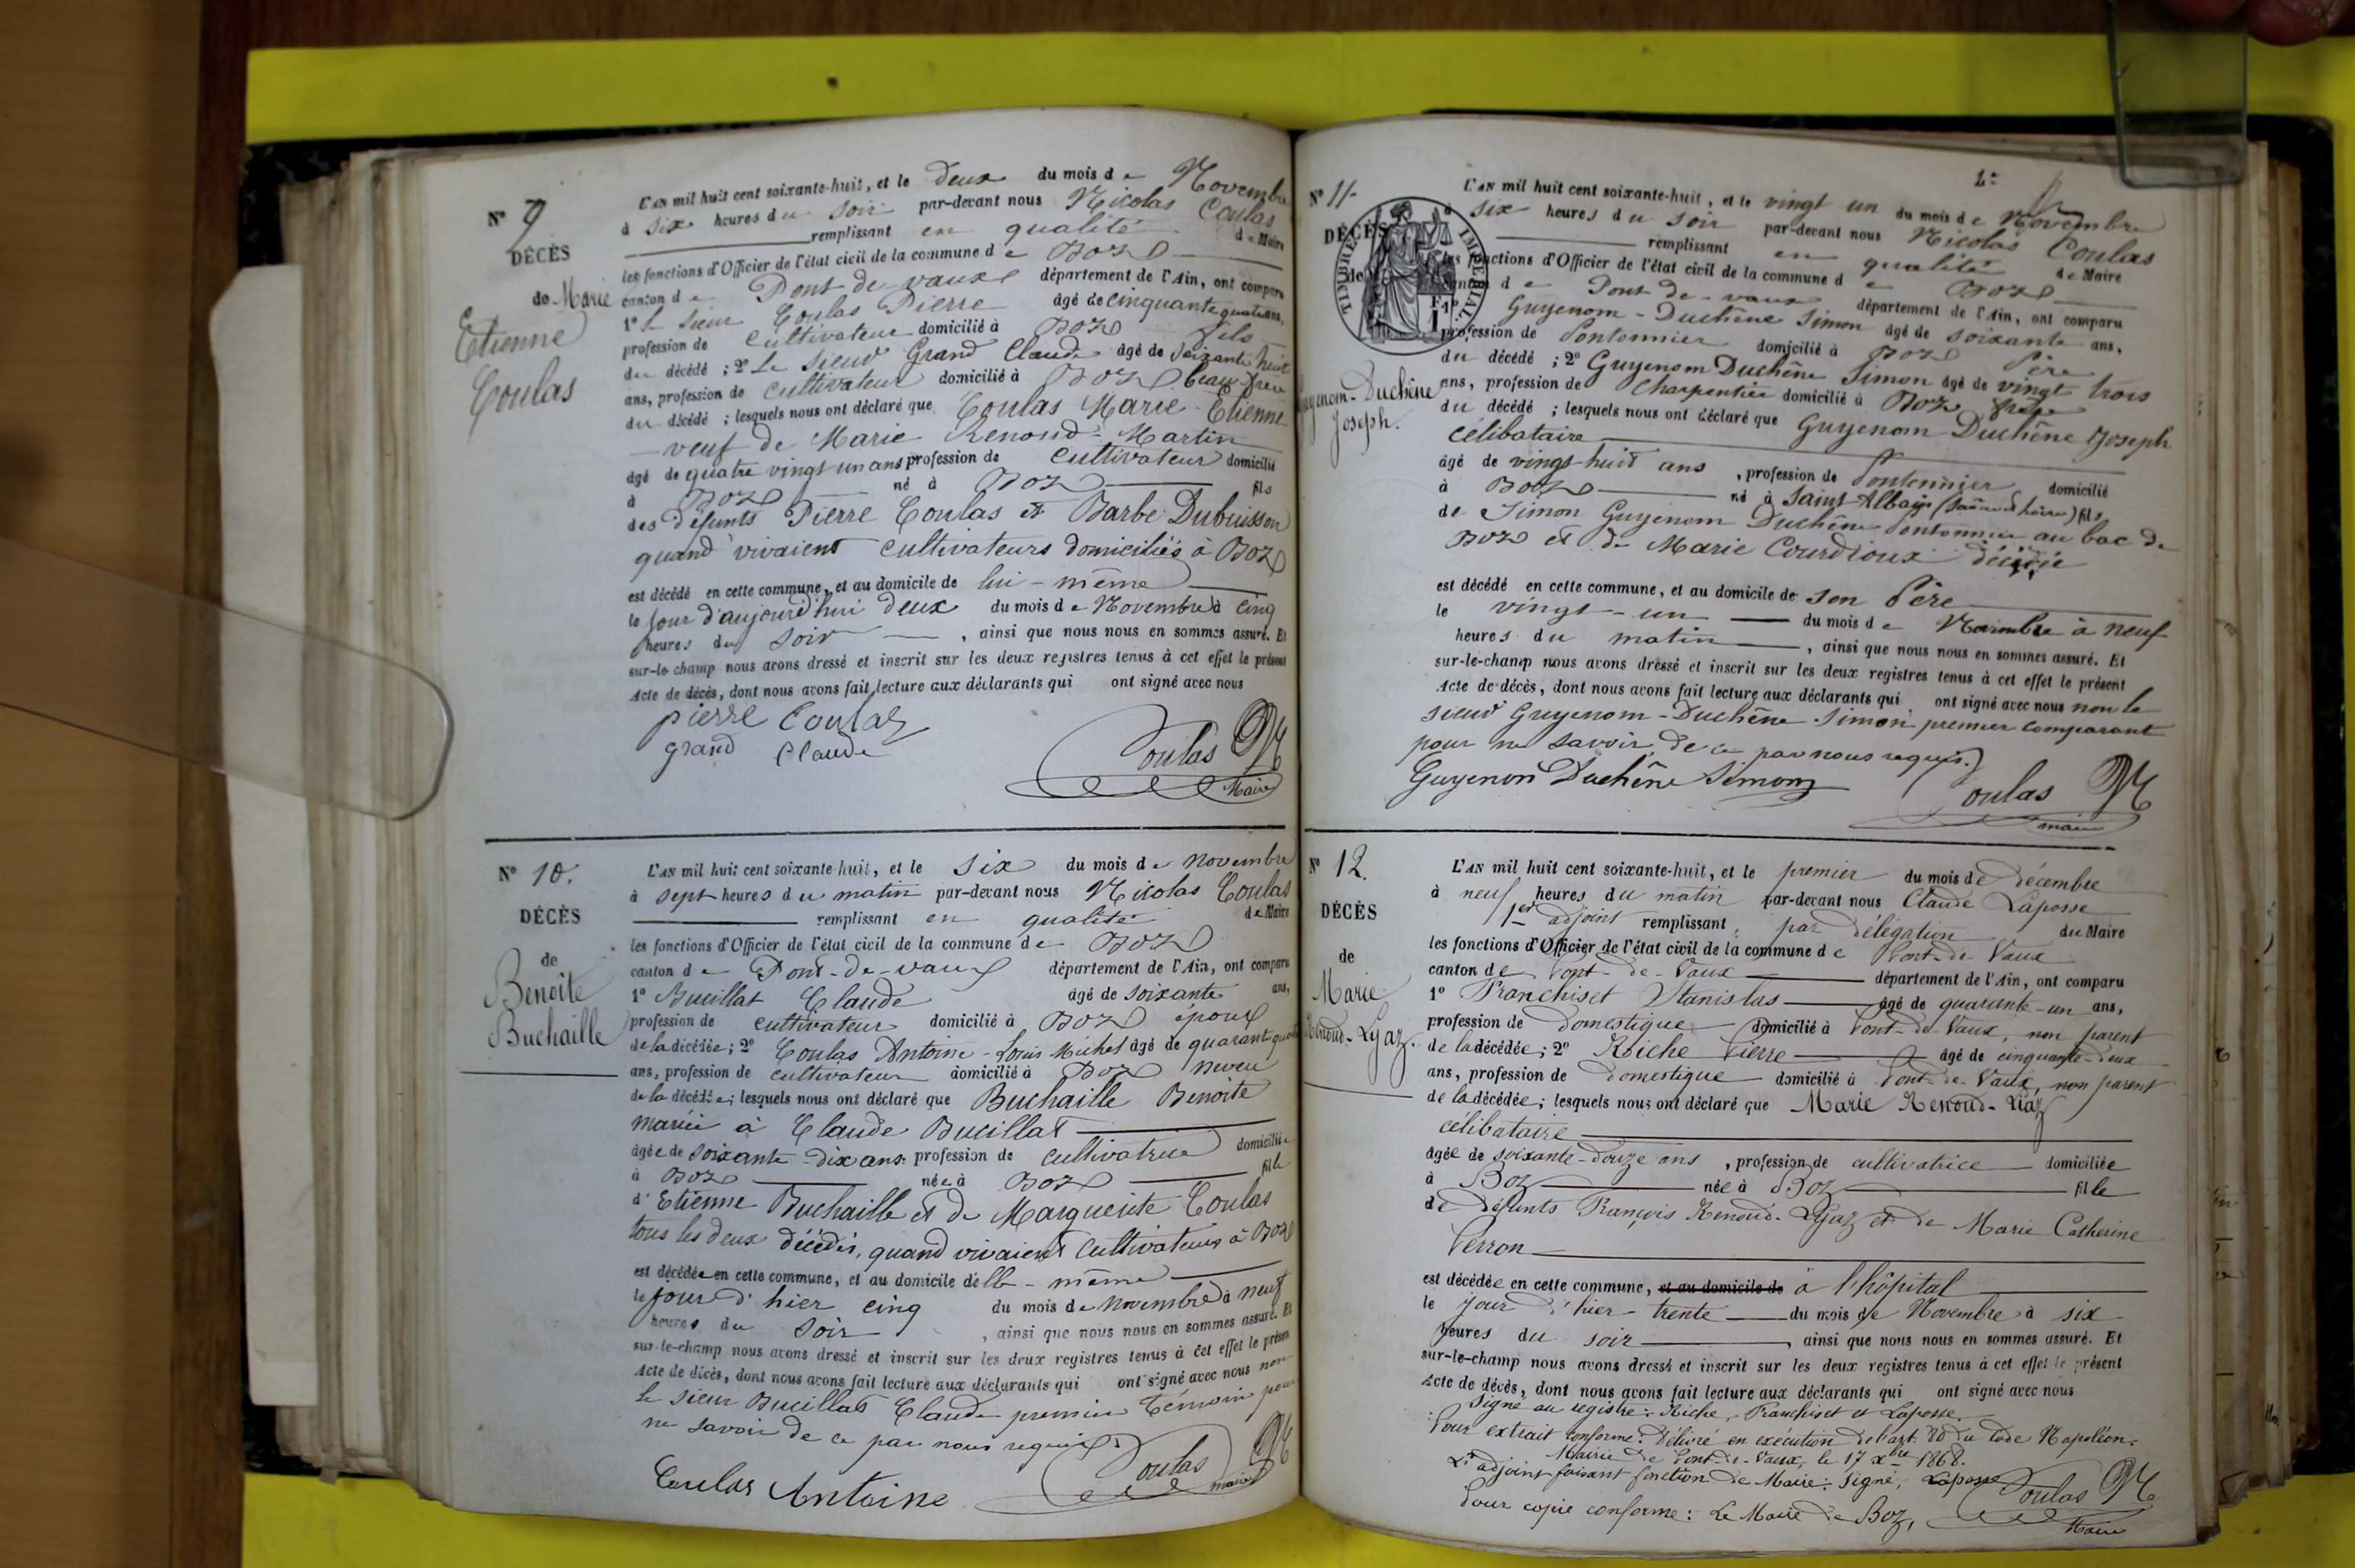 N° 9
DÉCÈS
de Marie
Etienne
Coulas
L'AN mil huit cent soixante-huit, et le deux du mois de Novembre
à six heures du soir par-devant nous Nicolas Coulas
remplissant en qualité de Maire
les fonctions d'Officier de l'état civil de la commune de Boz
canton de Pont-de-vaux département de l'Ain, ont comparu
1° le sieur Coulas Pierre âgé de cinquante quatre ans,
profession de cultivateur domicilié à Boz fils
du décédé ; 2° Le sieur Grand Claude âgé de soixante huit
ans, profession de cultivateur domicilié à Boz beau-frère
du décédé ; lesquels nous ont déclaré que Coulas Marie-Etienne
veuf de Marie Renoud-Martin
âgé de quatre vingt un ans profession de cultivateur domicilié
à Boz né à Boz fils
des défunts Pierre Coulas et Barbe Dubuisson
quand vivaient cultivateurs domiciliés à Boz
est décédé en cette commune, et au domicile de lui-même
le jour d'aujourd'hui deux du mois de Novembre à cinq
heures du soir, ainsi que nous nous en sommes assuré. Et
sur-le-champ nous avons dressé et inscrit sur les deux registres tenus à cet effet le présent
Acte de décès, dont nous avons fait lecture aux déclarants qui ont signé avec nous
pierre Coulas
grand Claude
Coulas N
Maire
N° 10.
DÉCÈS
de
Benoîte
Buchaille
L'AN mil huit cent soixante-huit, et le six du mois de novembre
à sept heures du matin par-devant nous Nicolas Coulas
remplissant en qualité de Maire
les fonctions d'Officier de l'état civil de la commune de Boz
canton de Pont-de-vaux département de l'Ain, ont comparu
1° Bucillat Claude âgé de soixante ans,
profession de cultivateur domicilié à Boz époux
de la décédée ; 2° Coulas Antoine-Louis Michel âgé de quarante quatre
ans, profession de cultivateur domicilié à Boz neveu
de la décédée ; lesquels nous ont déclaré que Buchaille Benoîte
mariée à Claude Bucillat
âgée de soixante-dix ans profession de cultivatrice domiciliée
à Boz née à Boz fille
d'Etienne Buchaille et de Marguerite Coulas
tous les deux décédés, quand vivaient cultivateurs à Boz
est décédée en cette commune, et au domicile d'elle-même
le jour d'hier cinq du mois de novembre à neuf
heures du soir, ainsi que nous nous en sommes assuré. Et
sur-le-champ nous avons dressé et inscrit sur les deux registres tenus à cet effet le présent
Acte de décès, dont nous avons fait lecture aux déclarants qui ont signé avec nous non
le sieur Bucillat Claude premier témoin pour
ne savoir de ce par nous requis.
Coulas Antoine
Coulas N
maire
2e
N° 11
DÉCÈS
de
TIMBRE IMPERIAL
Guyenom-Duchêne
Joseph.
L'AN mil huit cent soixante-huit, et le vingt un du mois de Novembre
à six heures du soir par-devant nous Nicolas Coulas
remplissant en qualité de Maire
les fonctions d'Officier de l'état civil de la commune de Boz
canton de Pont-de-vaux département de l'Ain, ont comparu
Guyenom-Duchêne Simon âgé de soixante ans,
profession de Pontonnier domicilié à Boz Père
du décédé ; 2° Guyenom Duchêne Simon âgé de vingt trois
ans, profession de Charpentier domicilié à Boz frère
du décédé ; lesquels nous ont déclaré que Guyenom Duchêne Joseph
célibataire
âgé de vingt-huit ans, profession de Pontonnier domicilié
à Boz né à Saint Albain (Saône et Loire) fils
de Simon Guyenom Duchêne Pontonnier au bac de
Boz et de Marie Courdioux décédée
est décédé en cette commune, et au domicile de son Père
le vingt-un du mois de Novembre à neuf
heures du matin, ainsi que nous nous en sommes assuré. Et
sur-le-champ nous avons dressé et inscrit sur les deux registres tenus à cet effet le présent
Acte de décès, dont nous avons fait lecture aux déclarants qui ont signé avec nous non le
sieur Guyenom-Duchêne Simon premier comparant
pour ne savoir de ce par nous requis.
Guyenon Duchêne Simon
Coulas N
maire
N° 12.
DÉCÈS
de
Marie
Renoud-Lyaz.
L'AN mil huit cent soixante-huit, et le premier du mois de décembre
à neuf heures du matin par-devant nous Claude Laposse
1er adjoint remplissant par délégation du Maire
les fonctions d'Officier de l'état civil de la commune de Pont-de-Vaux
canton de Pont-de-Vaux département de l'Ain, ont comparu
1° Franchiset Stanislas âgé de quarante-un ans,
profession de domestique domicilié à Pont-de-Vaux, non parent
de la décédée ; 2° Riche Pierre âgé de cinquante-deux
ans, profession de domestique domicilié à Pont-de-Vaux, non parent
de la décédée ; lesquels nous ont déclaré que Marie Renoud-Liaz
célibataire
âgée de soixante-douze ans, profession de cultivatrice domiciliée
à Boz née à Boz fille
de défunts François Renoud-Lyaz et de Marie Catherine
Perron
est décédée en cette commune, et au domicile de à l'hôpital
le jour d'hier trente du mois de Novembre à six
heures du soir ainsi que nous nous en sommes assuré. Et
sur-le-champ nous avons dressé et inscrit sur les deux registres tenus à cet effet le présent
Acte de décès, dont nous avons fait lecture aux déclarants qui ont signé avec nous
Signé au registre : Riche, Franchiset et Laposse.
Pour extrait conforme : délivré en exécution de l'art. 80 du Code Napoléon.
Mairie de Pont-de-Vaux, le 17 xbre 1868.
L'adjoint faisant fonction de Maire : Signé, Laposse
Pour copie conforme : Le Maire de Boz,
Coulas N
Maire